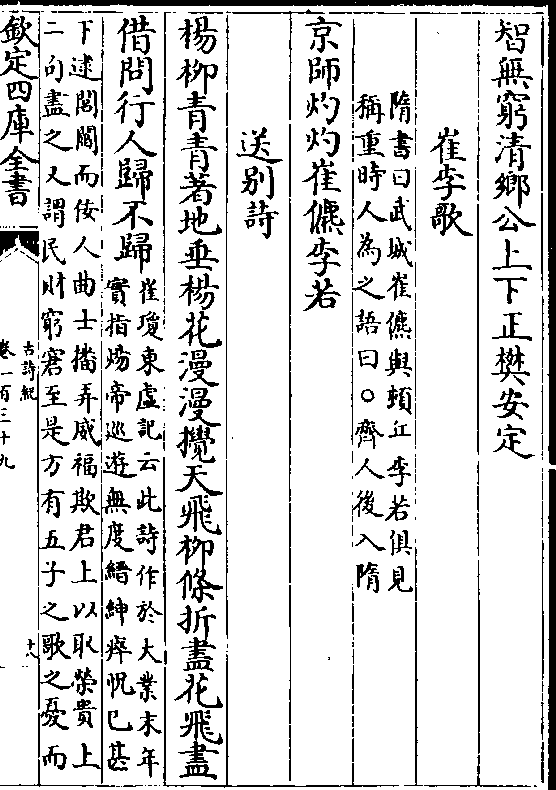 智無窮清鄉公上下正樊安定
崔李歌
隋書曰武城崔儦與頓丘李若俱見
稱重時人為之語曰○齊人後入隋
京師灼灼崔儦李若
送别詩
楊柳青青著地垂楊花漫漫攪天飛柳條折盡花飛盡
借問行人歸不歸
崔瓊東虛記云此詩作於大業末年
實指煬帝巡遊無度縉紳瘁怳已甚
下逮閭閻而佞人曲士播弄威福欺君上以取榮貴上
二句盡之又謂民財窮窘至是方有五子之歌之憂而
欽定四庫全書
古詩紀
卷一百三十九